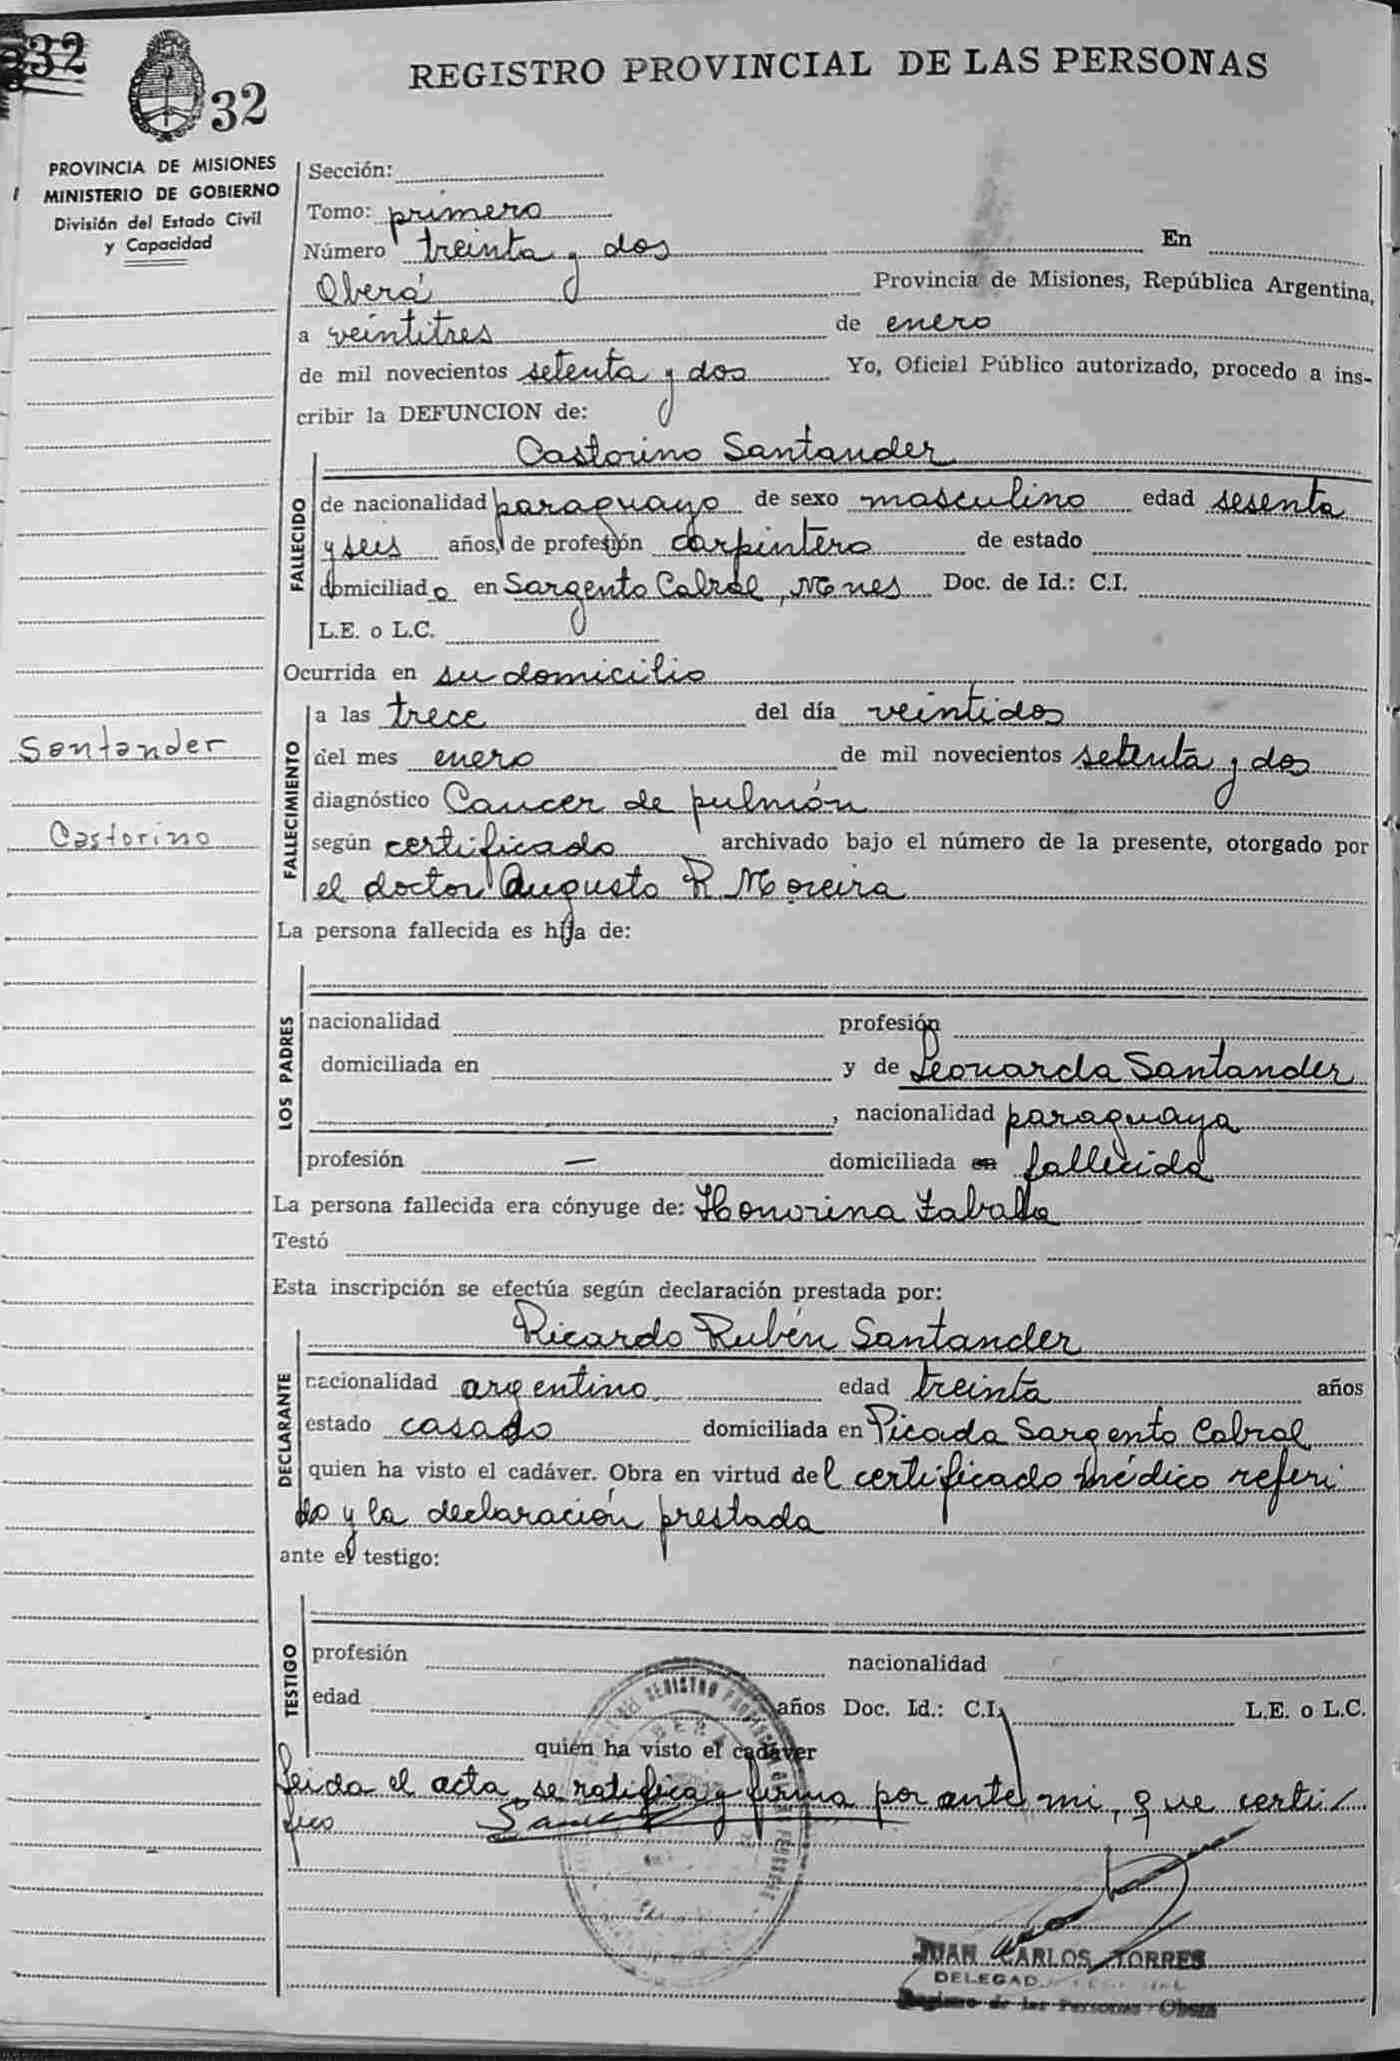 32
32
REGISTRO PROVINCIAL DE LAS PERSONAS
PROVINCIA DE MISIONES
MINISTERIO DE GOBIERNO
División del Estado Civil
y Capacidad
Sección:
Tomo: primero
Número treinta y dos En
Oberá Provincia de Misiones, República Argentina,
a veintitres de enero
de mil novecientos setenta y dos Yo, Oficial Público autorizado, procedo a ins-
cribir la DEFUNCION de:
Castorino Santander
FALLECIDO
de nacionalidad paraguayo de sexo masculino edad sesenta
y seis años, de profesión carpintero de estado
domiciliado en Sargento Cabral, Mnes Doc. de Id.: C.I.
L.E. o L.C.
Ocurrida en su domicilio
FALLECIMIENTO
a las trece del día veintidos
Santander
del mes enero de mil novecientos setenta y dos
diagnóstico Cancer de pulmón
Castorino
según certificado archivado bajo el número de la presente, otorgado por
el doctor Augusto R Moreira
La persona fallecida es hija de:
LOS PADRES
nacionalidad profesión
domiciliada en y de Leonarda Santander
, nacionalidad paraguaya
profesión — domiciliada en fallecida
La persona fallecida era cónyuge de: Honorina Zabala
Testó
Esta inscripción se efectúa según declaración prestada por:
Ricardo Rubén Santander
DECLARANTE
nacionalidad argentino edad treinta años
estado casado domiciliada en Picada Sargento Cabral
quien ha visto el cadáver. Obra en virtud del certificado médico referi
do y la declaración prestada
ante el testigo:
TESTIGO
profesión nacionalidad
edad años Doc. Id.: C.I. L.E. o L.C.
quien ha visto el cadáver
Leida el acta, se ratifica y firma por ante mi, que certi
fico
JUAN CARLOS TORRES
DELEGAD
Registro de las Personas - Oberá